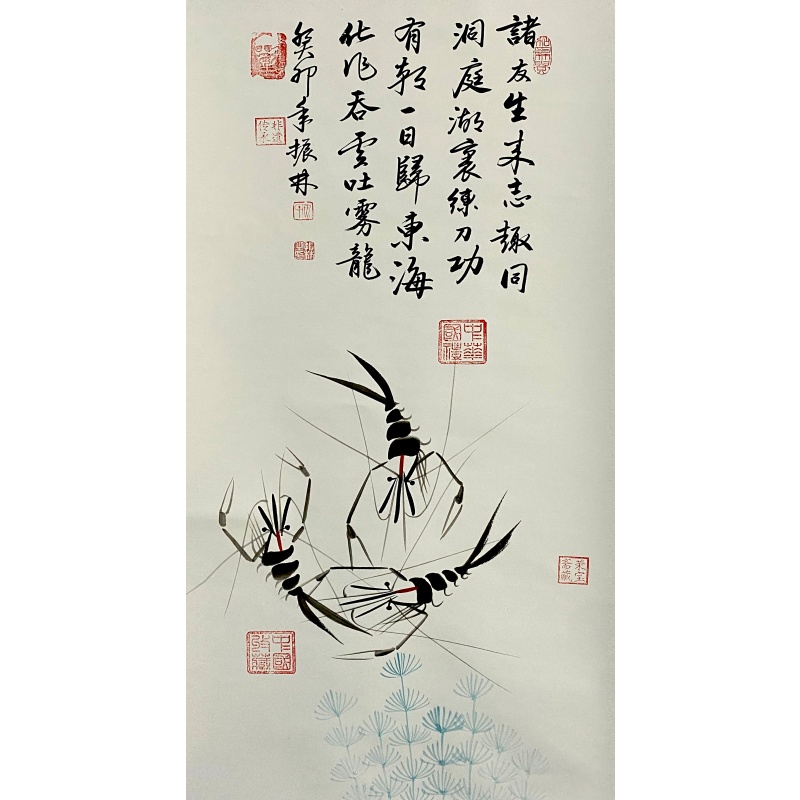 諸友生來志趣同
洞庭湖裏練刀功
有朝一日歸東海
化作吞雲吐霧龍
癸卯年振林
中華
國禮
中國
收藏
榮宝
斎藏